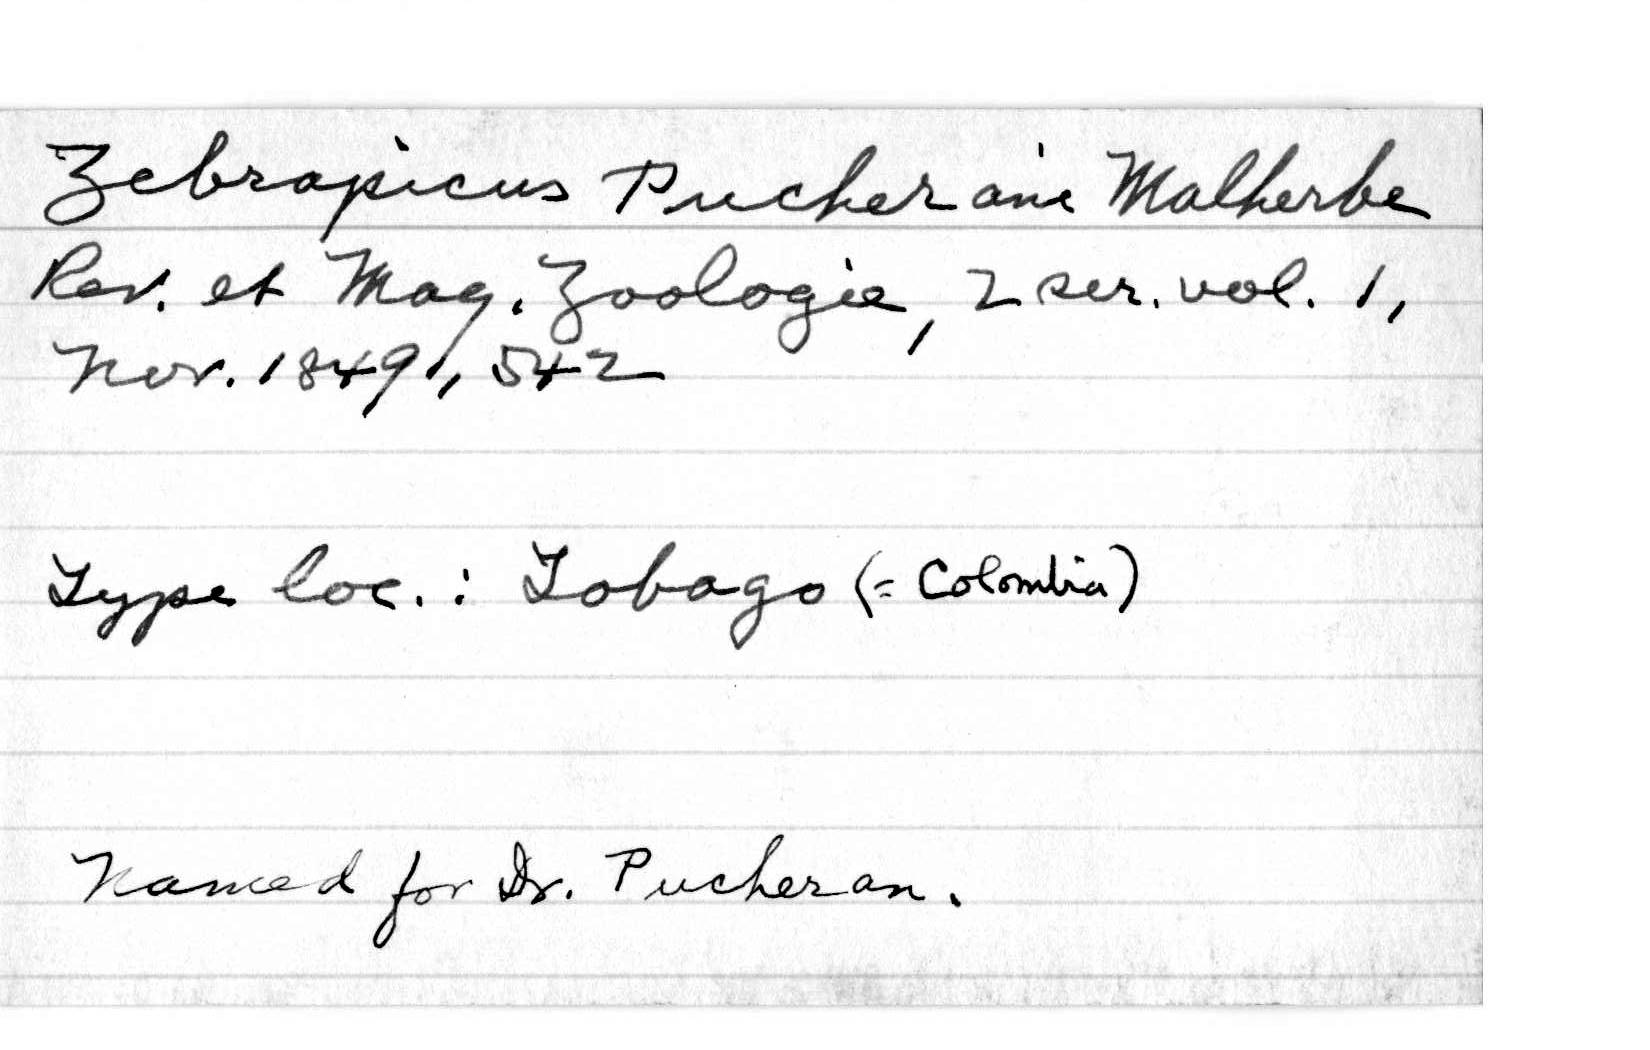 Zebrapicus Pucherani Malherbe
Rev. et Mag. Zoologie, 2 ser. vol. 1,
Nov. 1849, 542
Type loc.: Tobago (= Colombia)
Named for Dr. Pucheran.